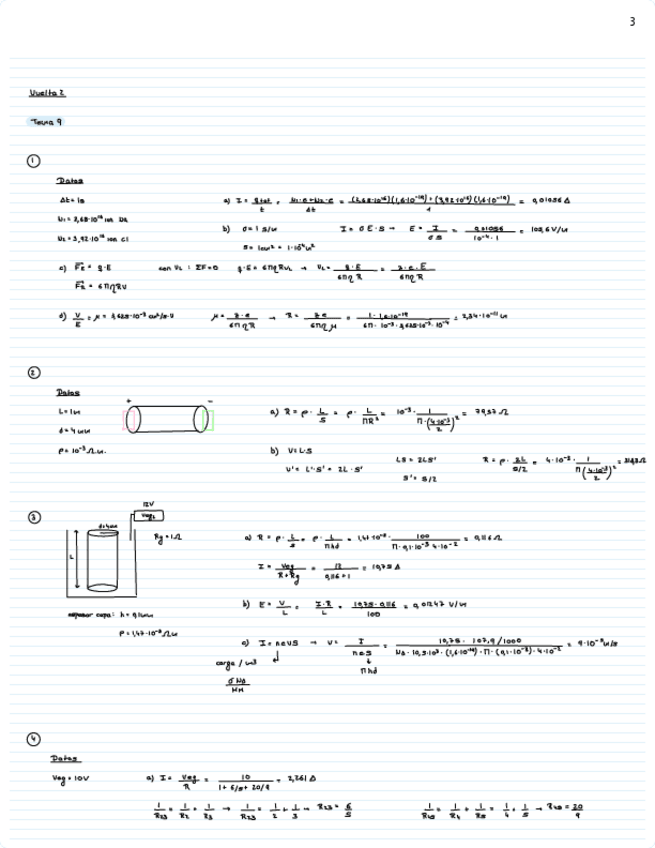 3
Vuelta 2
Tema 9
①
Datos
Δt = 1s
N₁ = 2,68·10¹⁶ ion Na
N₂ = 3,92·10¹⁶ ion Cl
a) I = Qtot/t = (N₁·e+N₂·e)/Δt = ((2,68·10¹⁶)(1,6·10⁻¹⁹)+(3,92·10¹⁶)(1,6·10⁻¹⁹))/1 = 0,01056 A
b) σ = 1 S/m I = σ E·S → E = I/(σ S) = 0,01056/(10⁻⁴·1) = 105,6 V/m
S = 1cm² = 1·10⁻⁴m²
c) Fe = q·E con VL : ΣF=0 q·E = 6πηRVL → VL = q·E/(6πηR) = z·e·E/(6πηR)
Fr = 6πηRV
d) V/E = μ = 3,625·10⁻³ cm²/s·V μ = z·e/(6πηR) → R = z·e/(6πημ) = 1·1,6·10⁻¹⁹/(6π·10⁻³·3,625·10⁻³·10⁻⁴) = 2,34·10⁻¹¹ m
②
Datos
L = 1m
d = 4 mm
ρ = 10⁻³ Ω m.
+ -
a) R = ρ · L/S = ρ · L/(πR²) = 10⁻³ · 1/(π·(4·10⁻³/2)²) = 79,57 Ω
b) V = L·S LS = 2LS' R = ρ · 2L/(S/2) = 4·10⁻³ · 1/(π(4·10⁻³/2)²) =
V' = L'·S' = 2L·S' S' = S/2
③
12V
Veg
d=4cm
Rg = 1Ω
L
espesor capa: h = 0,1mm
ρ = 1,47·10⁻⁸ Ω m
a) R = ρ · L/S = ρ · L/(πhd) = 1,47·10⁻⁸ · 100/(π·0,1·10⁻³·4·10⁻²) = 0,116 Ω
I = Veg/(R+Rg) = 12/(0,116+1) = 10,75 A
b) E = V/L = I·R/L = 10,75·0,116/100 = 0,01247 V/m
c) I = n e v S → v = I/(n e S) = 10,75·107,9/1000/(NA·10,5·10³·(1,6·10⁻¹⁹)·π·(0,1·10⁻³)·4·10⁻²) = 9·10⁻⁵ m/s
carga / m3
πhd
④
Datos
Veg = 10V
a) I = Veg/R = 10/(1+6/5+20/9) = 2,261 A
1/R23 = 1/R2 + 1/R3 → 1/R23 = 1/2 + 1/3 → R23 = 6/5 1/R45 = 1/R4 + 1/R5 = 1/4 + 1/5 → R45 = 20/9